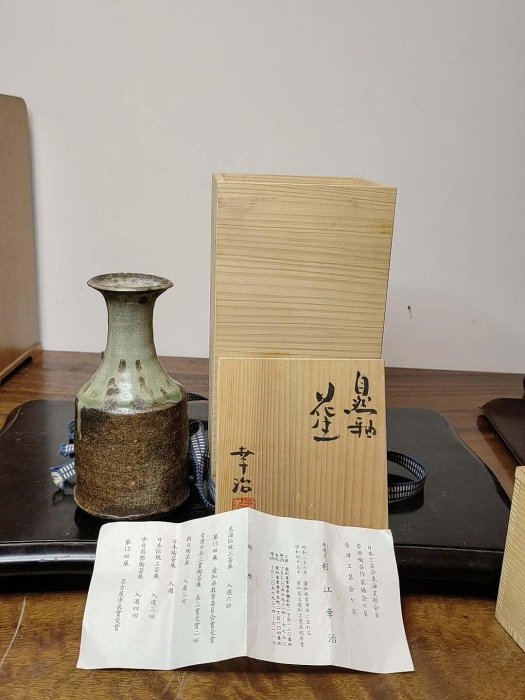 自然釉
花生
幸治
日本工芸会東海支部会員
常滑陶芸作家協会々員
常滑工芸会々員
杉江幸治
陶歴
東海伝統工芸展 入選六回
第15回展 愛知県教育委員会賞受賞
常滑市長三賞陶芸展 長三賞受賞二回
朝日陶芸展 入選三回
日本陶芸展 入選
日本伝統工芸展 入選三回
中日国際陶芸展 入選四回
第12回展 名古屋市長賞受賞